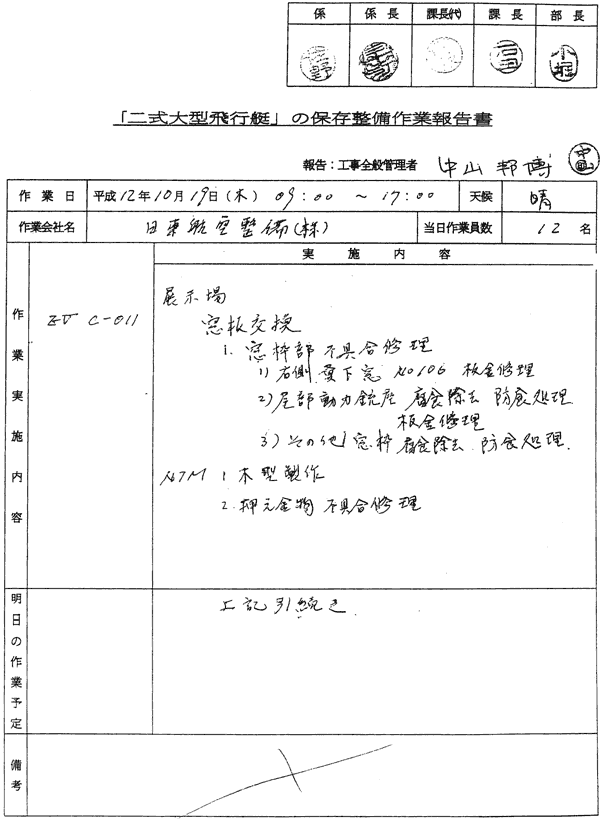 係 係長 課長代 課長 部長
小堀
「二式大型飛行艇」の保存整備作業報告書
報告:工事全般管理者 中山邦博
作業日 平成12年10月19日(木) 09:00 ~ 17:00 天候 晴
作業会社名 日東航空整備(株) 当日作業員数 12名
実施内容
作業実施内容
C-011
展示場
窓板交換
1. 窓枠部不具合修理
1) 右側翼下窓 No106 板金修理
2) 尾部動力銃座 腐食除去 防食処理
板金修理
3) その他窓枠 腐食除去 防食処理.
NTM 1. 木型製作
2. 押え金物 不具合修理
明日の作業予定
上記引続き
備考